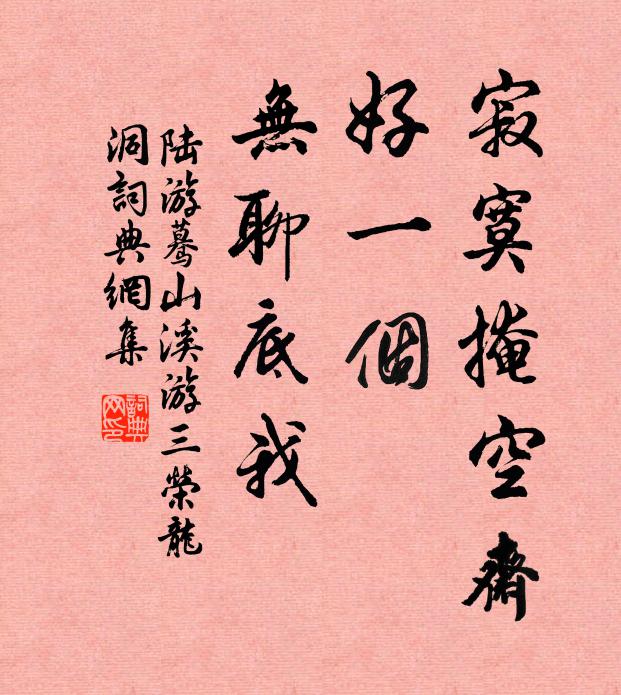 寂寞掩空齋
好一個
無聊底我
陸游驀山溪游三榮龍
洞詞典網集
詞典網印